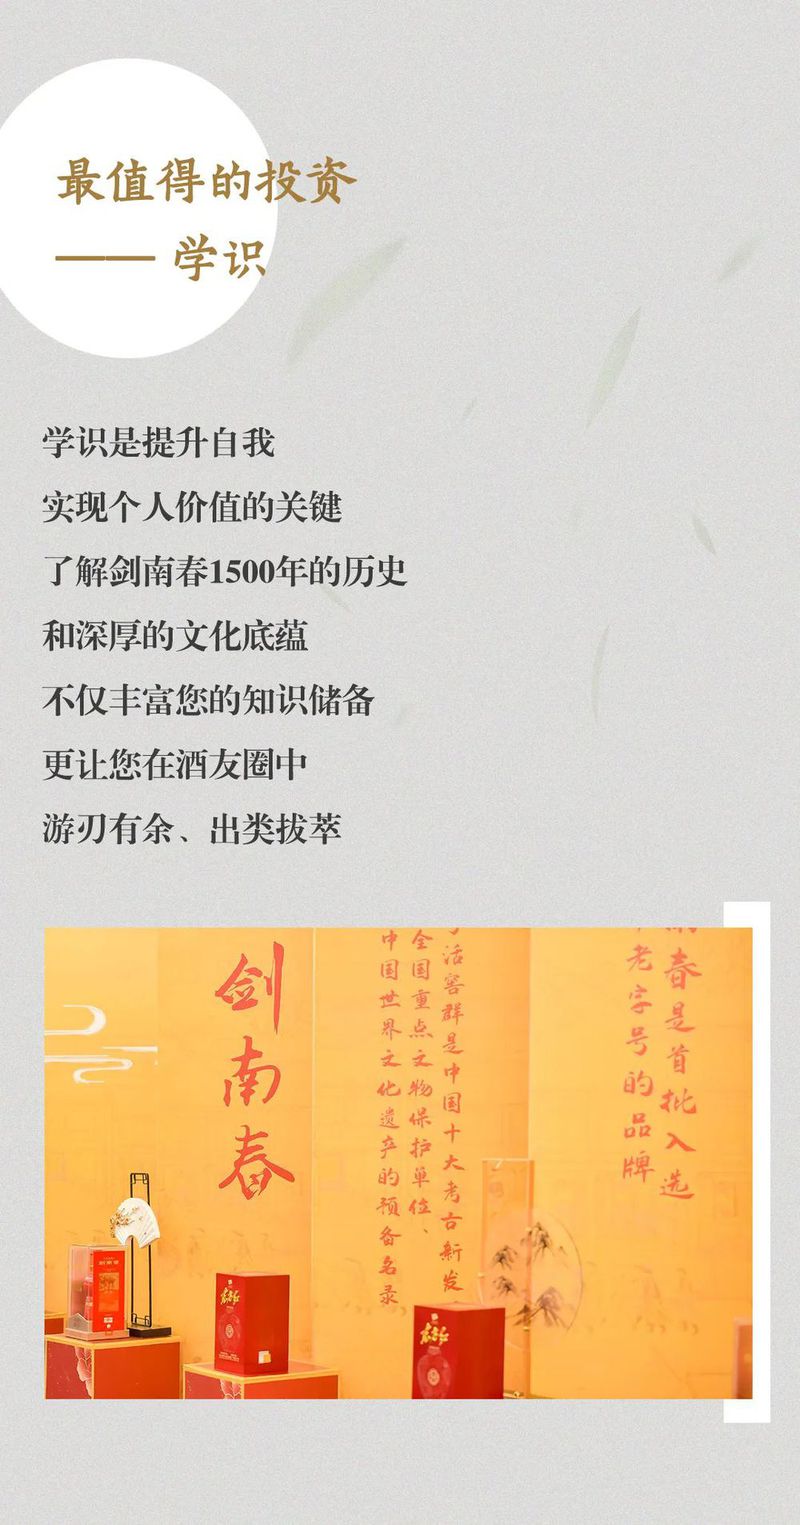 最值得的投资
—— 学识
学识是提升自我
实现个人价值的关键
了解剑南春1500年的历史
和深厚的文化底蕴
不仅丰富您的知识储备
更让您在酒友圈中
游刃有余、出类拔萃
剑南春
春是首批入选
老字号的品牌
活窖群是中国十大考古新发
全国重点文物保护单位、
中国世界文化遗产的预备名录